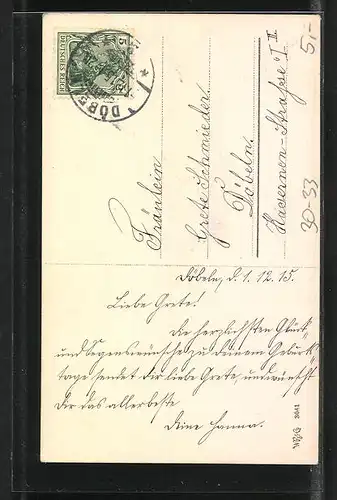 5
DEUTSCHES REICH
DÖBELN
Fräulein
Grete Schmieder
Döbeln.
Kasernen-Straße 1 II
5,-
30-33
Döbeln, d. 1. 12. 15.
Liebe Grete!
Die herzlichsten Glück-
und Segenswünsche zu deinem Geburts-
tage sendet Dir liebe Grete, und wünscht
Dir das allerbeste
Deine Hanna.
3641